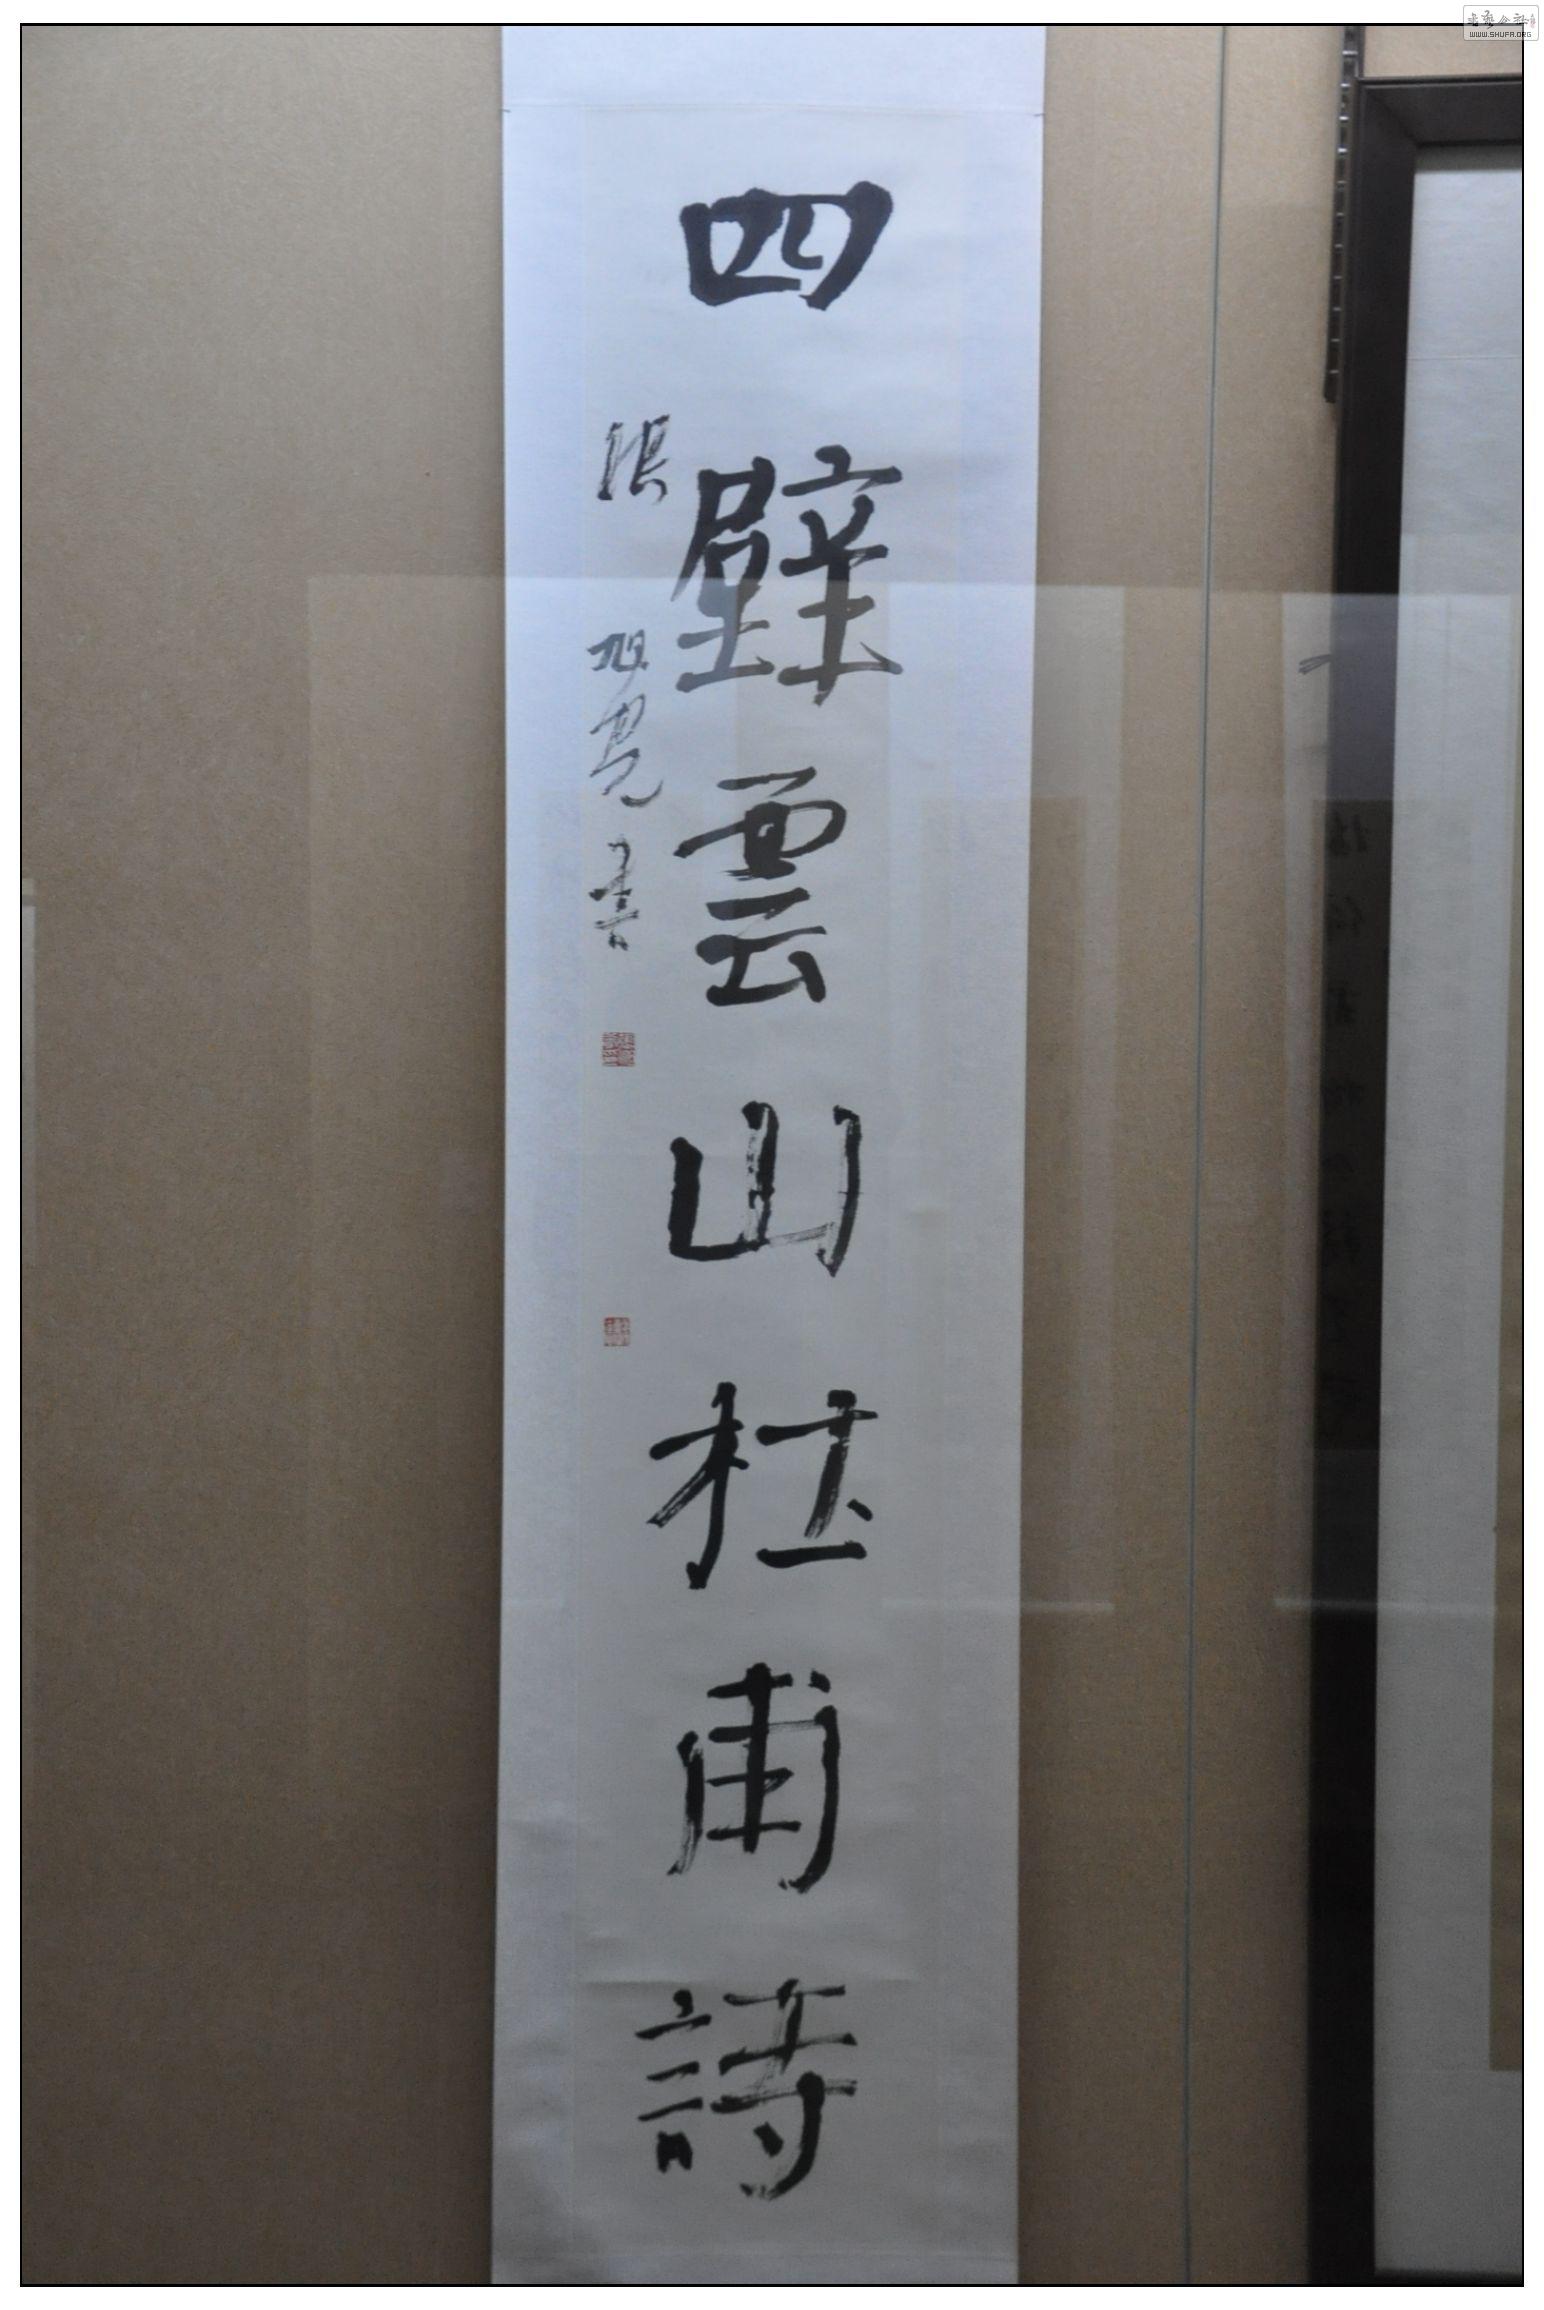 四壁雲山杜甫詩
張旭光書
WWW.SHUFA.ORG